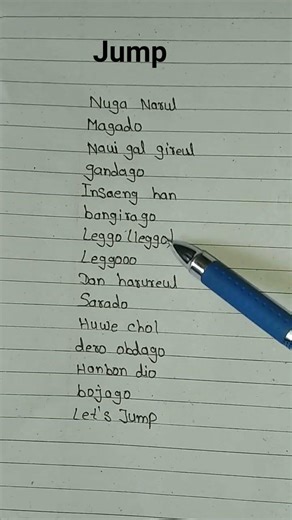 Jump
Nuga Narul
Magado
Naui gal gireul
gandago
Insaeng han
bangirago
Leggo (leggo)
Leggooo
Dan harureul
Sarado
Huwe chol
dero obdago
Hanbon dio
bojago
Let's Jump